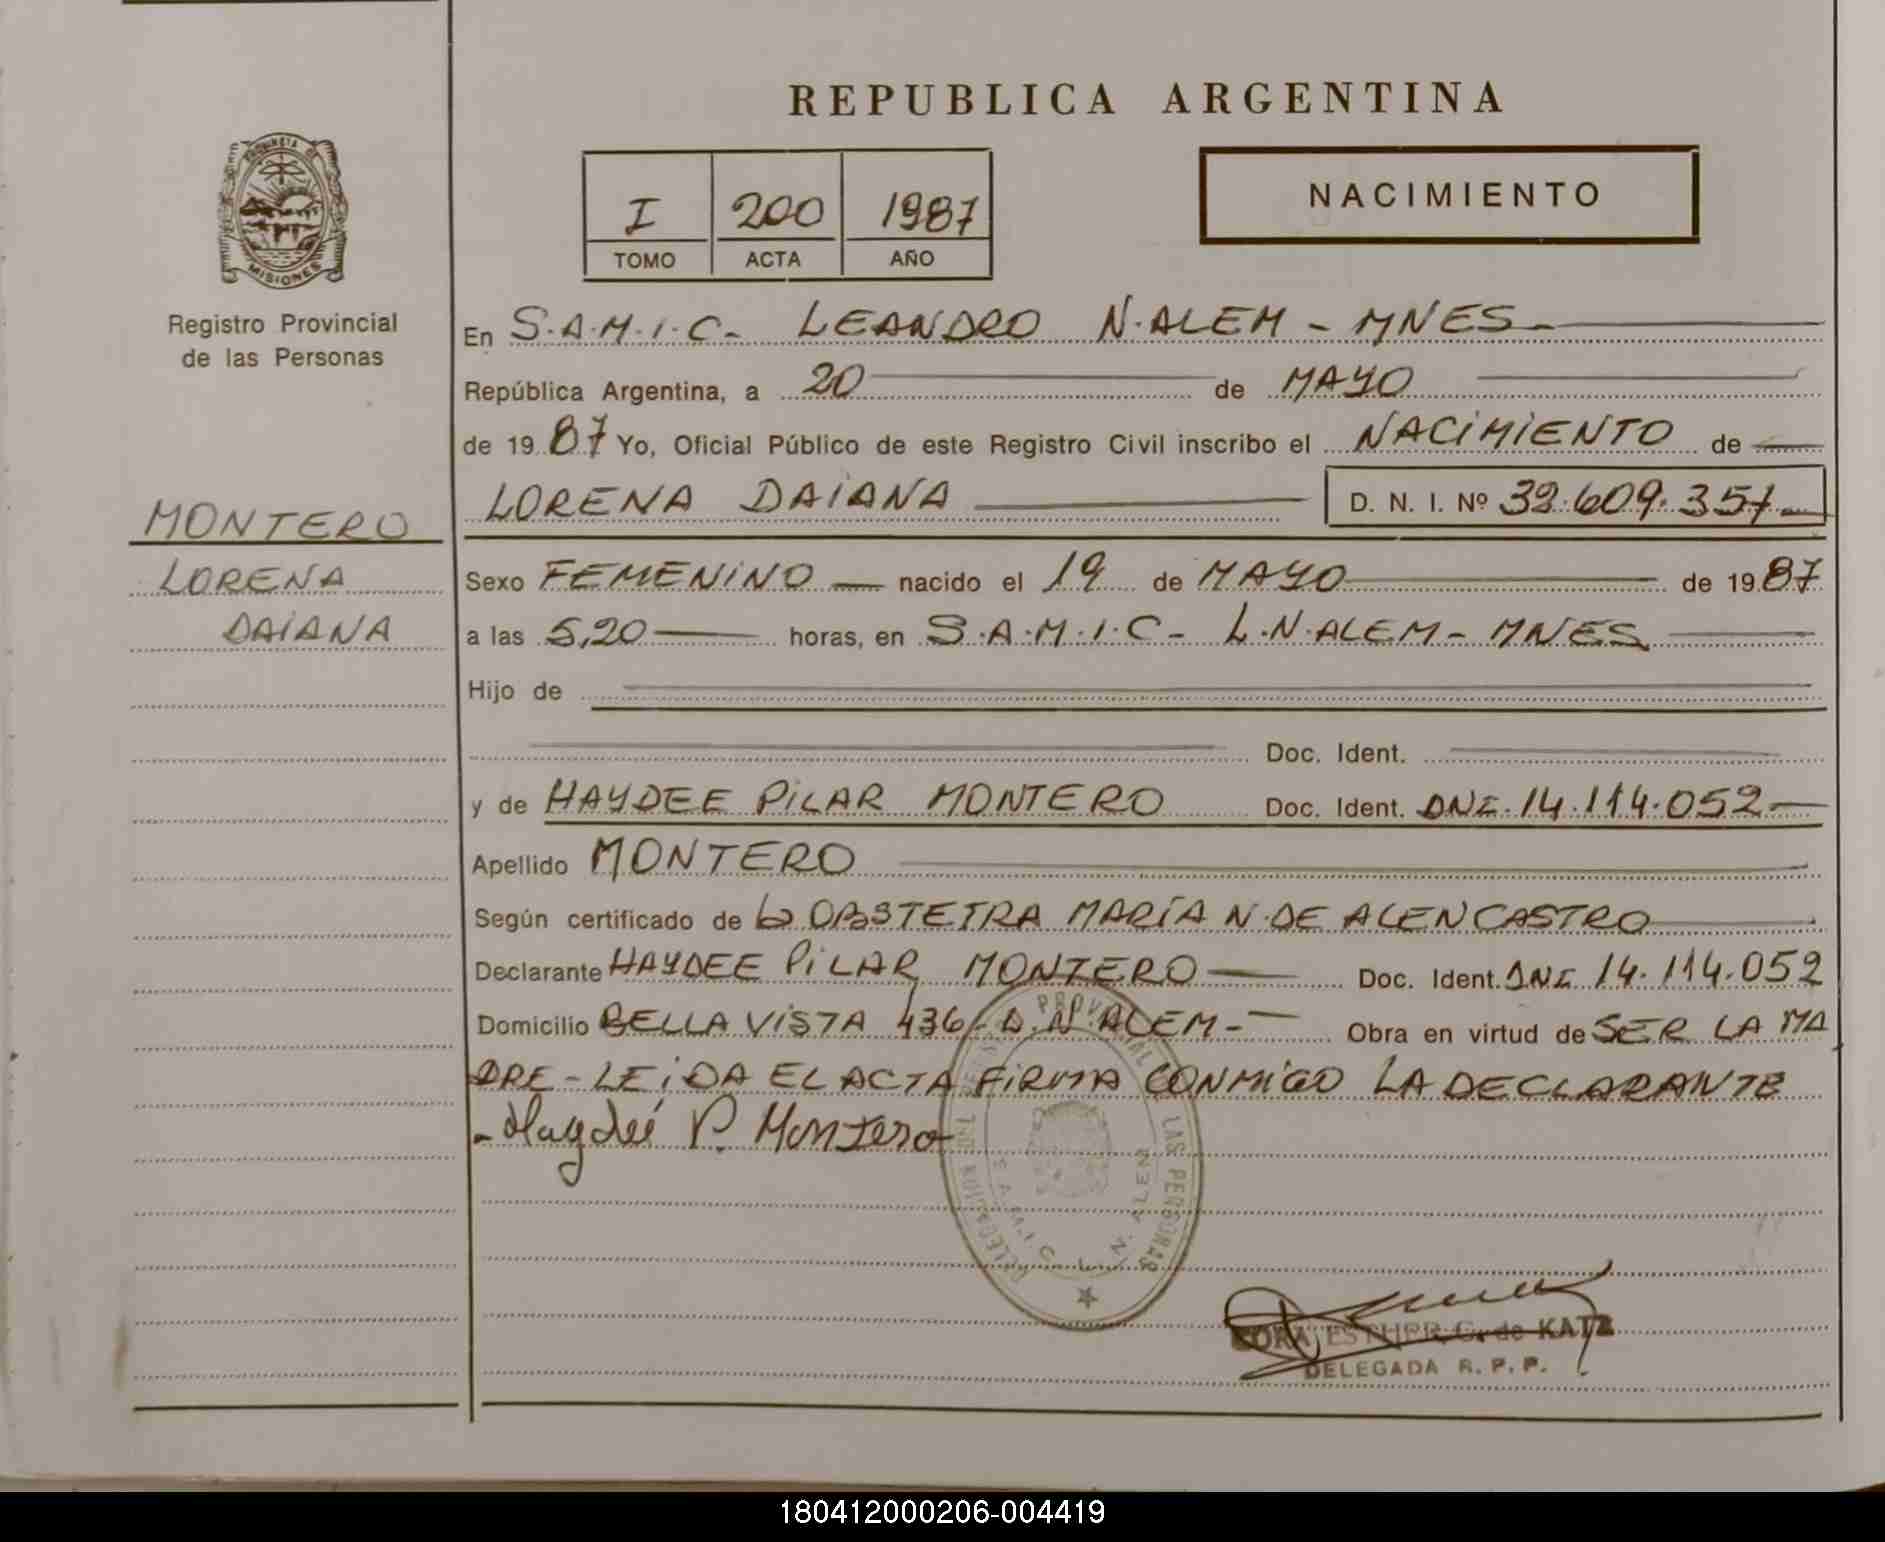 REPUBLICA ARGENTINA
PROVINCIA DE
MISIONES
Registro Provincial
de las Personas
I 200 1987
TOMO ACTA AÑO
NACIMIENTO
En S.A.M.I.C- LEANDRO N.ALEM - MNES-
República Argentina, a 20 de MAYO
de 19 87 Yo, Oficial Público de este Registro Civil inscribo el NACIMIENTO de
LORENA DAIANA D. N. I. Nº 32.609.357
MONTERO
LORENA
DAIANA
Sexo FEMENINO nacido el 19 de MAYO de 19 87
a las 5,20 horas, en S.A.M.I.C- L.N.ALEM- MNES
Hijo de
Doc. Ident.
y de HAYDEE PILAR MONTERO Doc. Ident. DNI.14.114.052
Apellido MONTERO
Según certificado de la OBSTETRA MARÍA N.DE ALENCASTRO
Declarante HAYDEE PILAR MONTERO Doc. Ident. DNI 14.114.052
Domicilio BELLA VISTA 436- L.N.ALEM- Obra en virtud de SER LA MA
DRE - LEIDA EL ACTA FIRMA CONMIGO LA DECLARANTE
- Haydeé P. Montero
DELEGACION DEL REG. PROVINCIAL LAS PERSONAS
S.A.M.I.C. L.N. ALEM
ESTHER G. de KATZ
DELEGADA R. P. P.
180412000206-004419